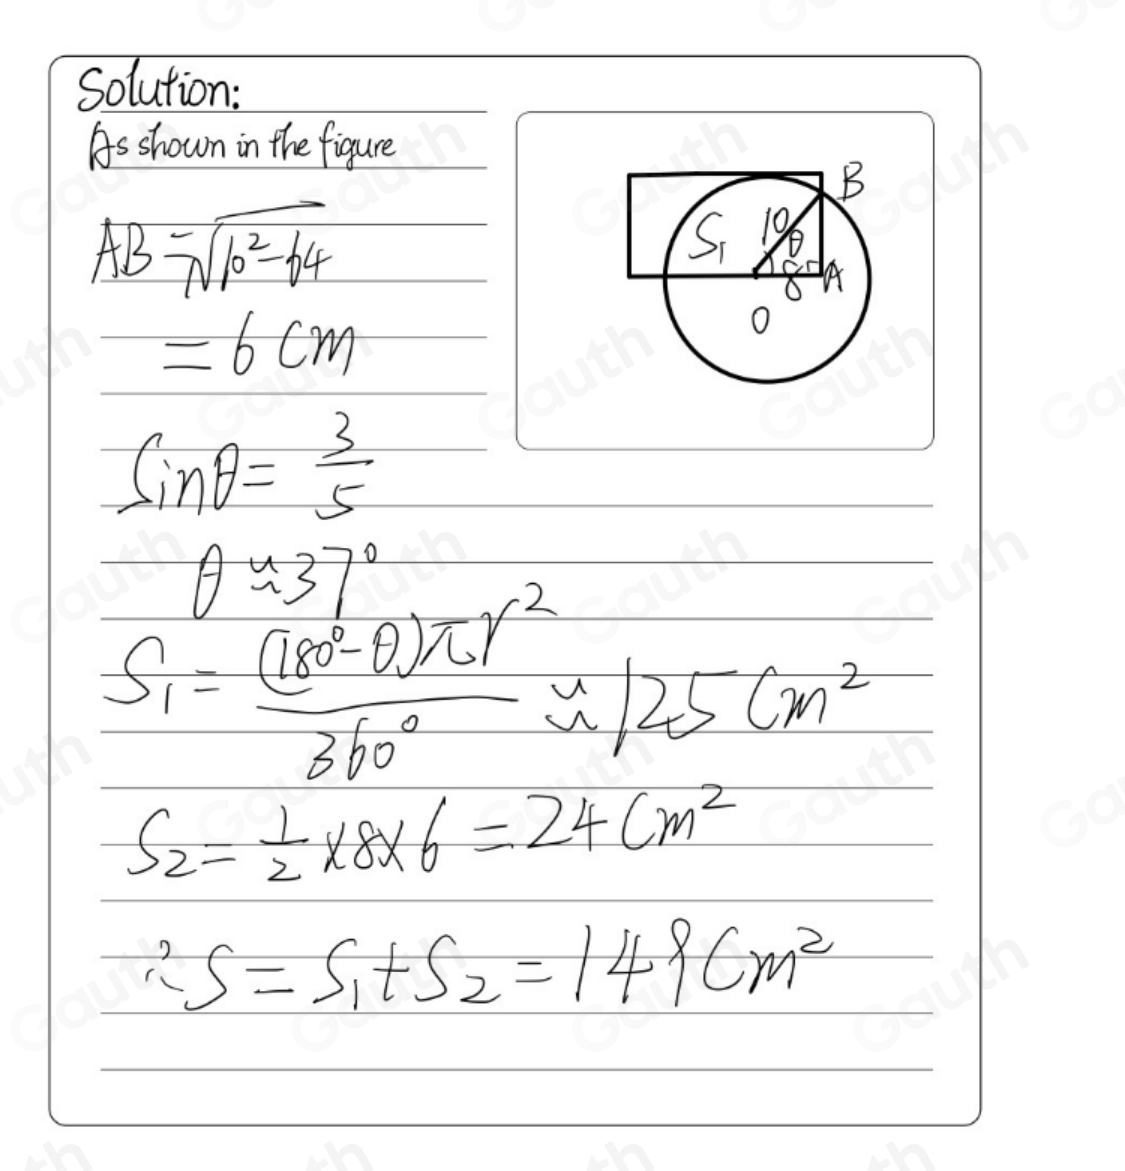 Solution:
As shown in the figure
AB = √10²-64
= 6 cm
Sinθ = 3/5
θ ≈ 37°
S₁ = (180°-θ)πr²/360° ≈ 125 cm²
S₂ = 1/2 × 8 × 6 = 24 cm²
∴ S = S₁ + S₂ = 149 cm²
B
S₁ 10 θ
8 A
O
Gauth